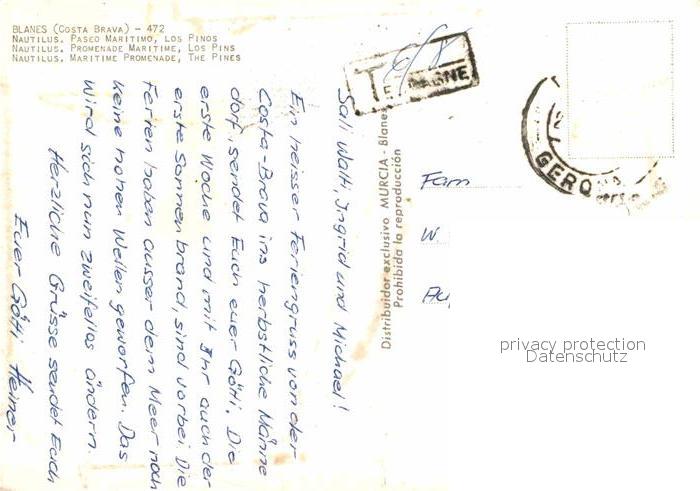 BLANES (COSTA BRAVA) - 472
NAUTILUS. PASEO MARITIMO, LOS PINOS
NAUTILUS. PROMENADE MARITIME, LOS PINS
NAUTILUS. MARITIME PROMENADE, THE PINES
Sali Walti, Ingrid und Michael!
Ein heisser Feriengruss von der
Costa-Brava ins herbstliche Männe
dorf, sendet Euch euer Götti. Die
erste Woche und mit Ihr auch der
erste Sonnenbrand, sind vorbei. Die
Ferien haben ausser dem Meer noch
keine hohen Wellen geworfen. Das
wird sich nun zweifellos ändern.
Herzliche Grüsse sendet Euch
Euer Götti Heiner
Distribuidor exclusivo MURCIA - Blanes
Prohibida la reproducción
T
GERO
Fam
W.
privacy protection
Datenschutz